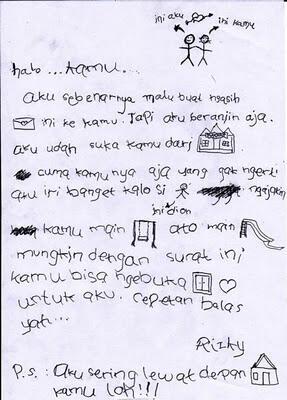 ini aku ini kamu
halo ... kamu ...
aku sebenarnya malu buat ngasih
ini ke kamu. Tapi aku beranjin aja.
aku udah suka kamu dari
cuma kamunya aja yang gak ngerti
aku iri banget kalo si ngajakin
ini dion
kamu main ato main
mungkin dengan surat ini
kamu bisa ngebuka
untuk aku. cepetan balas
yah...
Rizky
P.S. : Aku sering lewat depan
kamu loh!!!